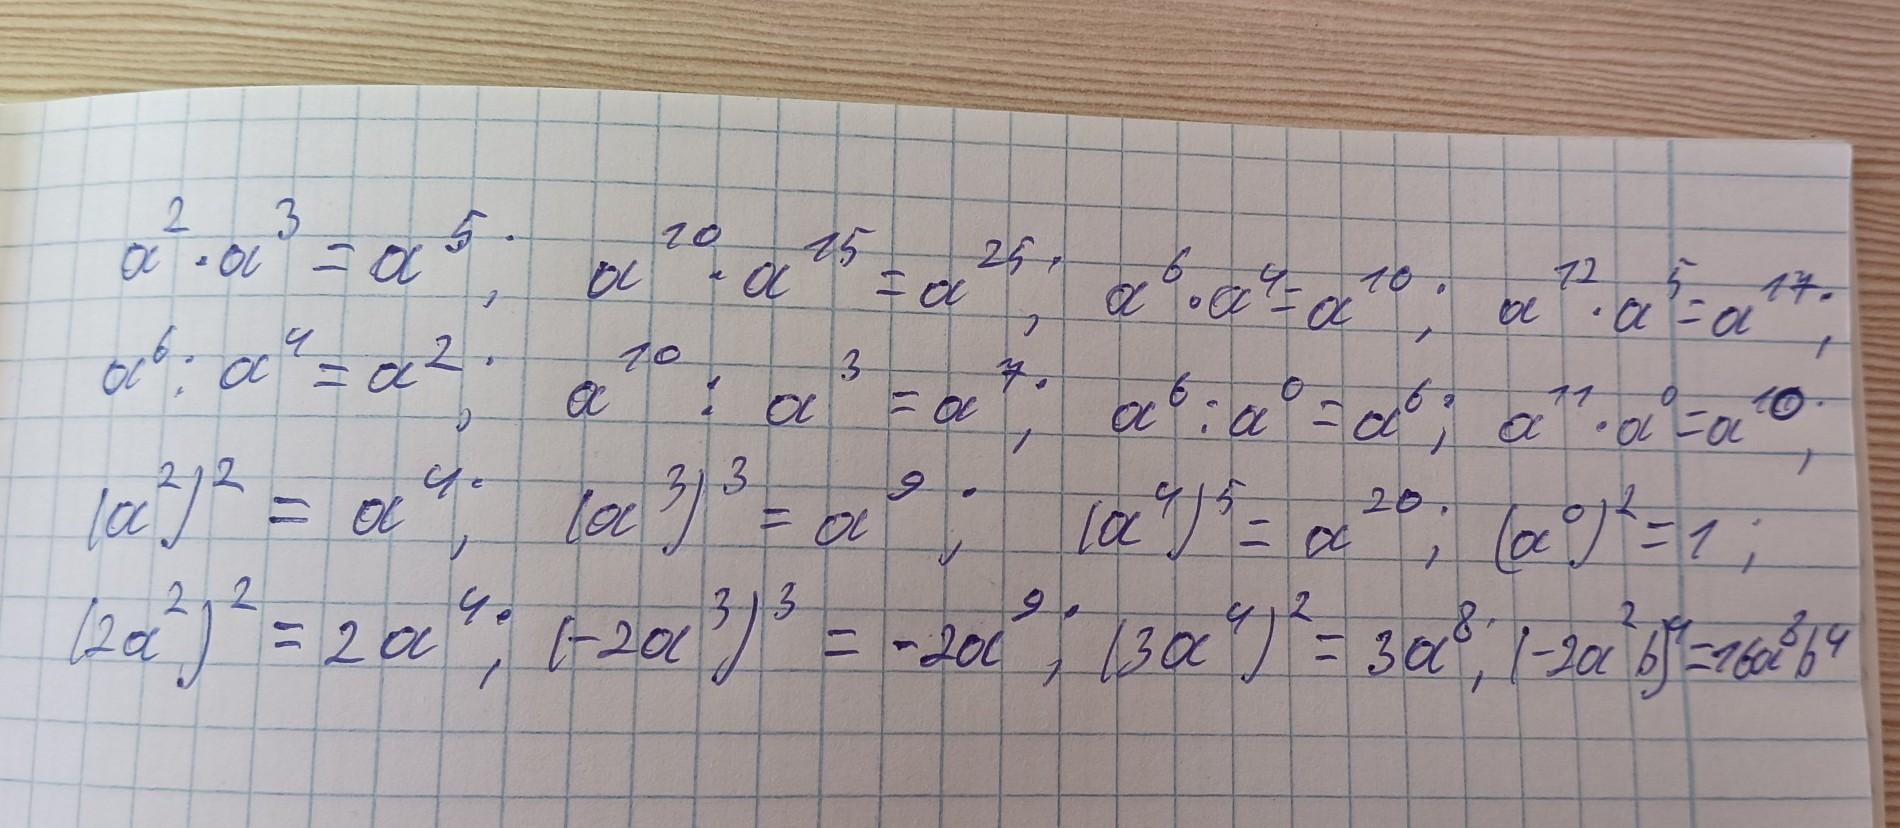 a² · a³ = a⁵; a¹⁰ · a¹⁵ = a²⁵; a⁶ · a⁴ = a¹⁰; a¹² · a⁵ = a¹⁷;
a⁶ : a⁴ = a²; a¹⁰ : a³ = a⁷; a⁶ : a⁰ = a⁶; a¹¹ · a⁰ = a¹⁰;
(a²)² = a⁴; (a³)³ = a⁹; (a⁴)⁵ = a²⁰; (a⁰)² = 1;
(2a²)² = 2a⁴; (-2a³)³ = -2a⁹; (3a⁴)² = 3a⁸; (-2a²b)⁴ = 16a⁸b⁴